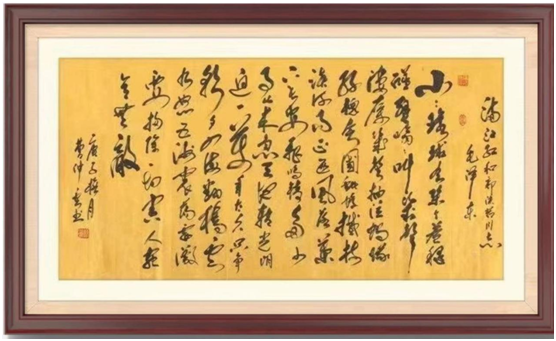 满江红和郭沫若同志
毛泽东
小小环球有几个苍蝇
碰壁嗡嗡叫几声
凄厉几声抽泣蚂蚁缘
槐夸大国蚍蜉撼树
谈何易正西风落叶
下长安飞鸣镝多少
事从来急天地转光阴
迫一万年太久只争
朝夕四海翻腾云水
怒五洲震荡风雷激
要扫除一切害人虫
全无敌
庚子梅月